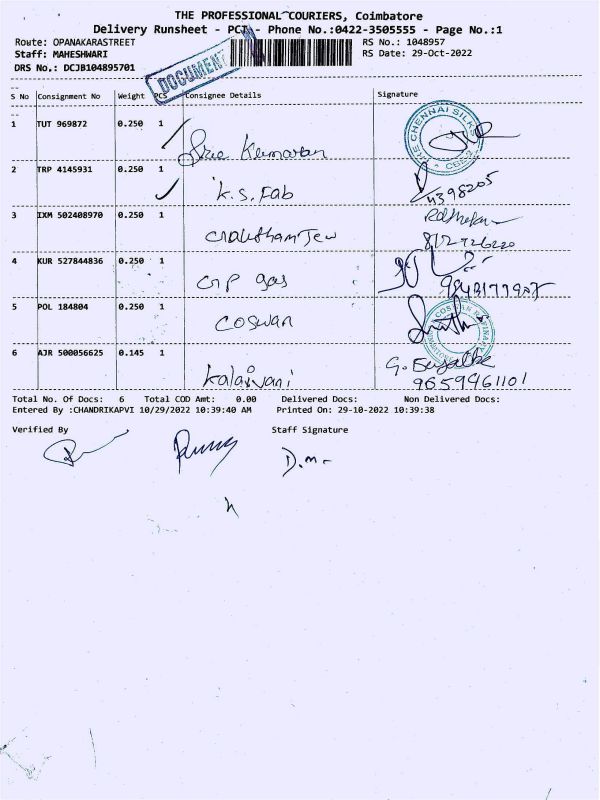 THE PROFESSIONAL COURIERS, Coimbatore
Delivery Runsheet - PCJ - Phone No.:0422-3505555 - Page No.:1
Route: OPANAKARASTREET RS No.: 1048957
Staff: MAHESHWARI RS Date: 29-Oct-2022
DRS No.: DCJB104895701
DOCUMENT
S No Consignment No Weight PCS Consignee Details Signature
1 TUT 969872 0.250 1 Sree Kumaran
THE CHENNAI SILKS
CBE-2
2 TRP 4145931 0.250 1 K.S. Fab
3 IXM 502408970 0.250 1
4 KUR 527844836 0.250 1 gas
5 POL 184804 0.250 1 coswan
6 AJR 500056625 0.145 1 kalaivani
9659961101
Total No. Of Docs: 6 Total COD Amt: 0.00 Delivered Docs: Non Delivered Docs:
Entered By :CHANDRIKAPVI 10/29/2022 10:39:40 AM Printed On: 29-10-2022 10:39:38
Verified By Staff Signature
D.m.